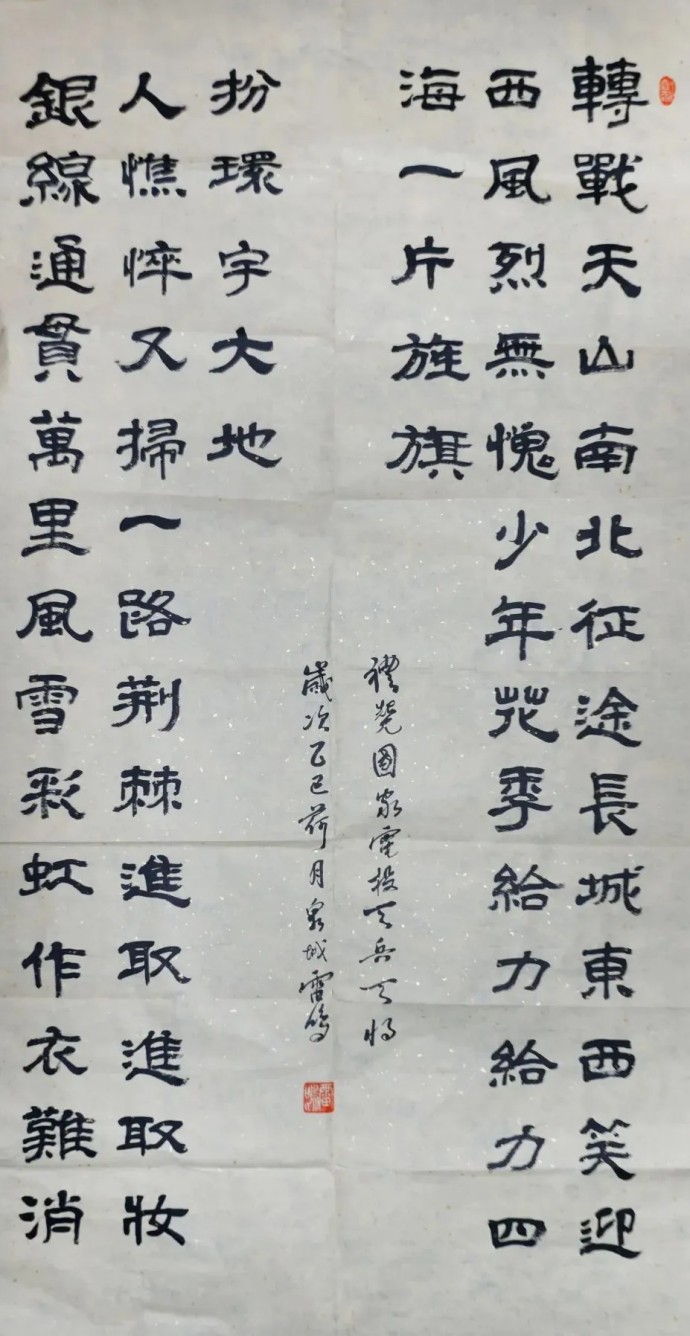 轉戰天山南北征途長城東西笑迎
西風烈無愧少年花季給力給力四
海一片旌旗
銀線通貫萬里風雪彩虹作衣難消
人憔悴又掃一路荊棘進取進取妝
扮環宇大地
禮國家電投天兵天將
歲次乙巳荷月泉城雷鳴